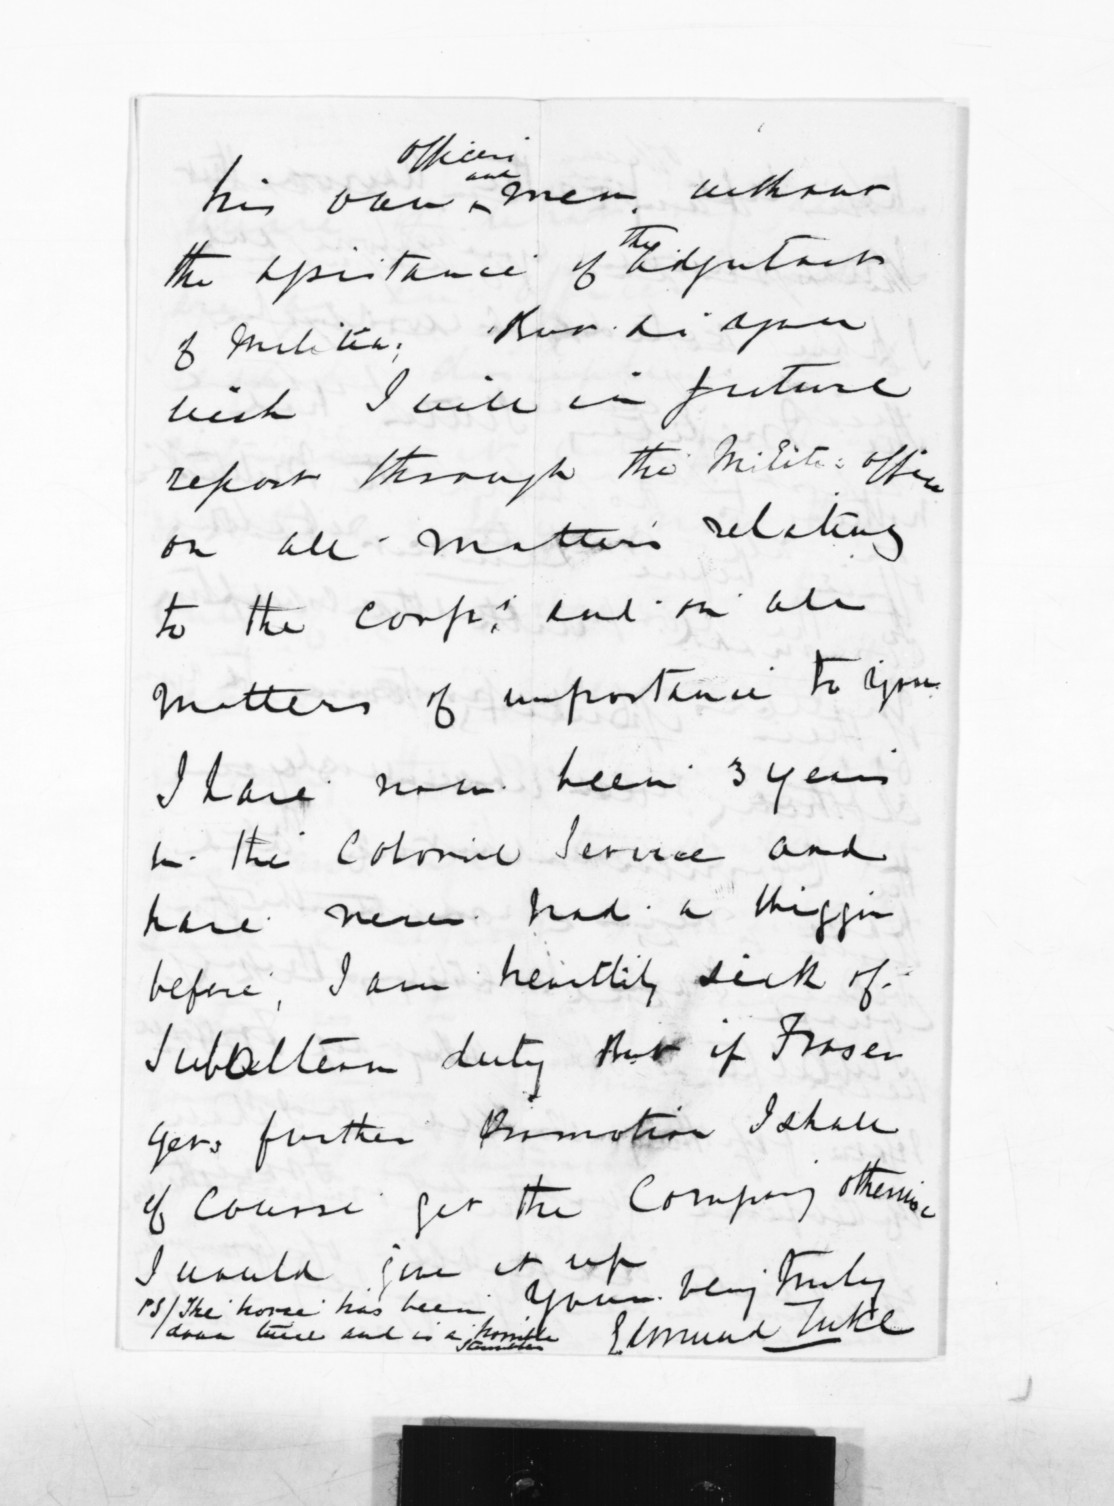 officers
and
his own men, without
the assistance of the Adjutant
of Militia; But as is your
wish I will in future
report through the Militia office
on all matters relating
to the Corps, and on all
matters of importance to you.
I have now been 3 years
in the Colonial Service and
have never had a wiggin
before, I am heartily sick of
Subaltern duty But if Fraser
gets further Promotion I shall
of course get the Company otherwise
I would give it up
Yours very truly
Edmund Tuke
PS/ The horse has been
down twice and is a horrible
stumbler